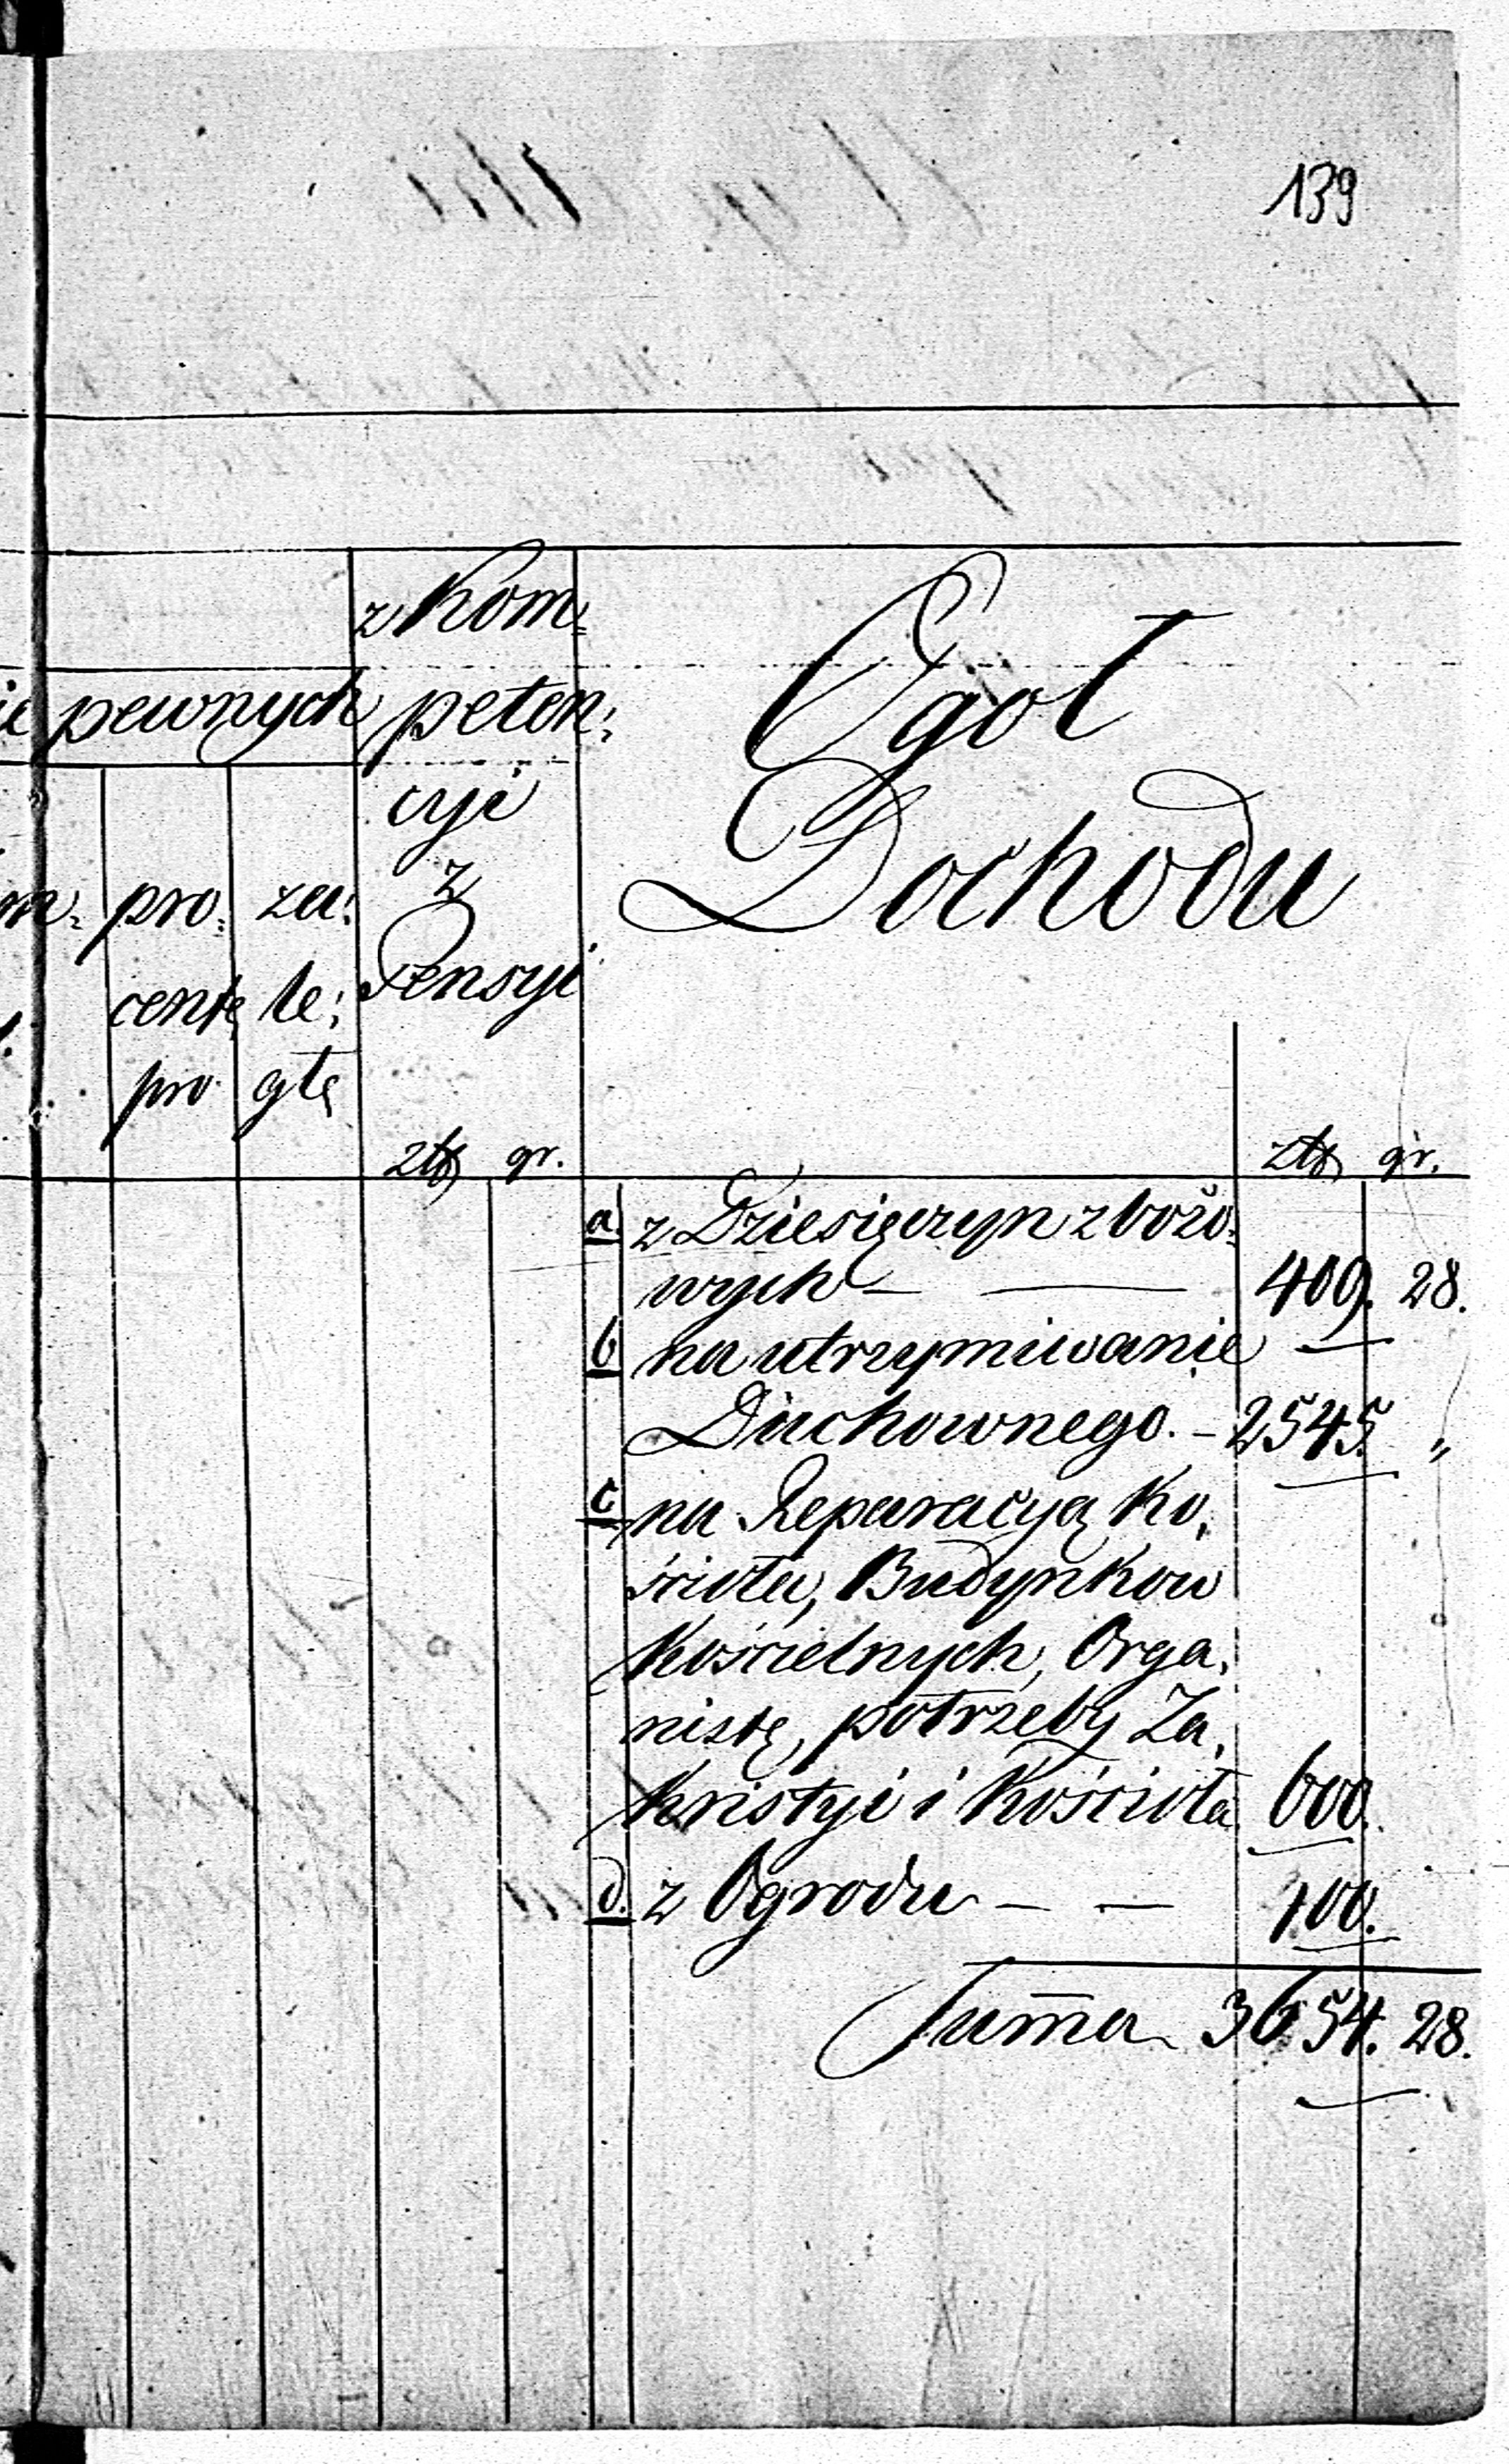 139
z Kom=
pewnych peten:
cyi
z
Pensyi
Ogoł
Dochodu
pro: za:
centę le:
pro głe
złł gr. złł gr.
a. z Dziesięczyn zbożo=
wych — — 409. 28.
b na utrzymiwanie
Duchownego. - 2545. "
c na Reparacyą Ko,
ścioła, Budynkow
Kościelnych, Orga,
nistę, potrzeby Za,
kristyi i Kościoła 600.
d. z Ogrodu — — 100.
Sum̄a 3654. 28.